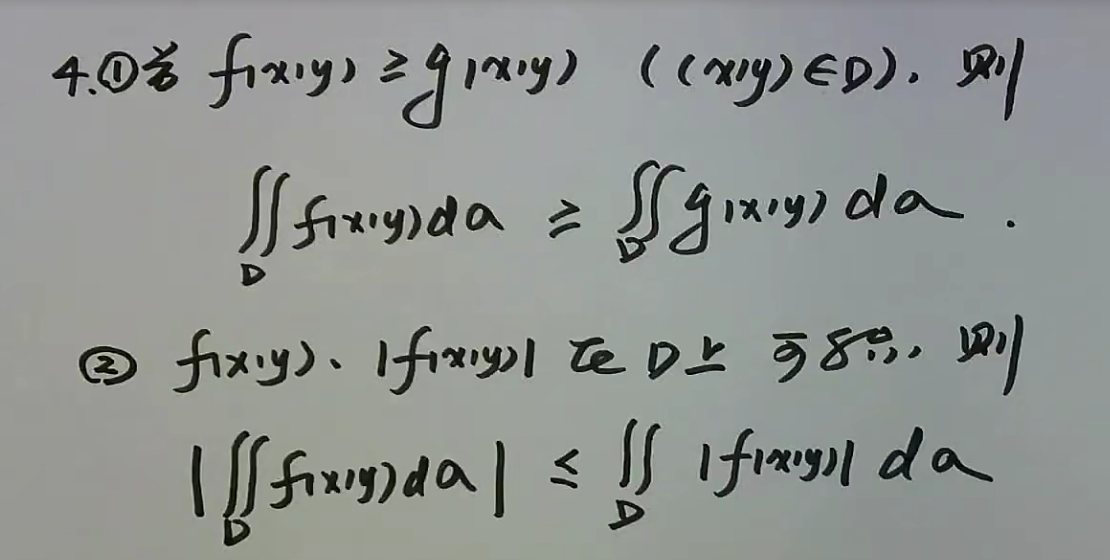 4.①若 f(x,y) ≥ g(x,y) ((x,y)∈D), 则
∬_D f(x,y)dσ ≥ ∬_D g(x,y)dσ.
② f(x,y)、|f(x,y)| 在 D上 可积, 则
|∬_D f(x,y)dσ| ≤ ∬_D |f(x,y)| dσ